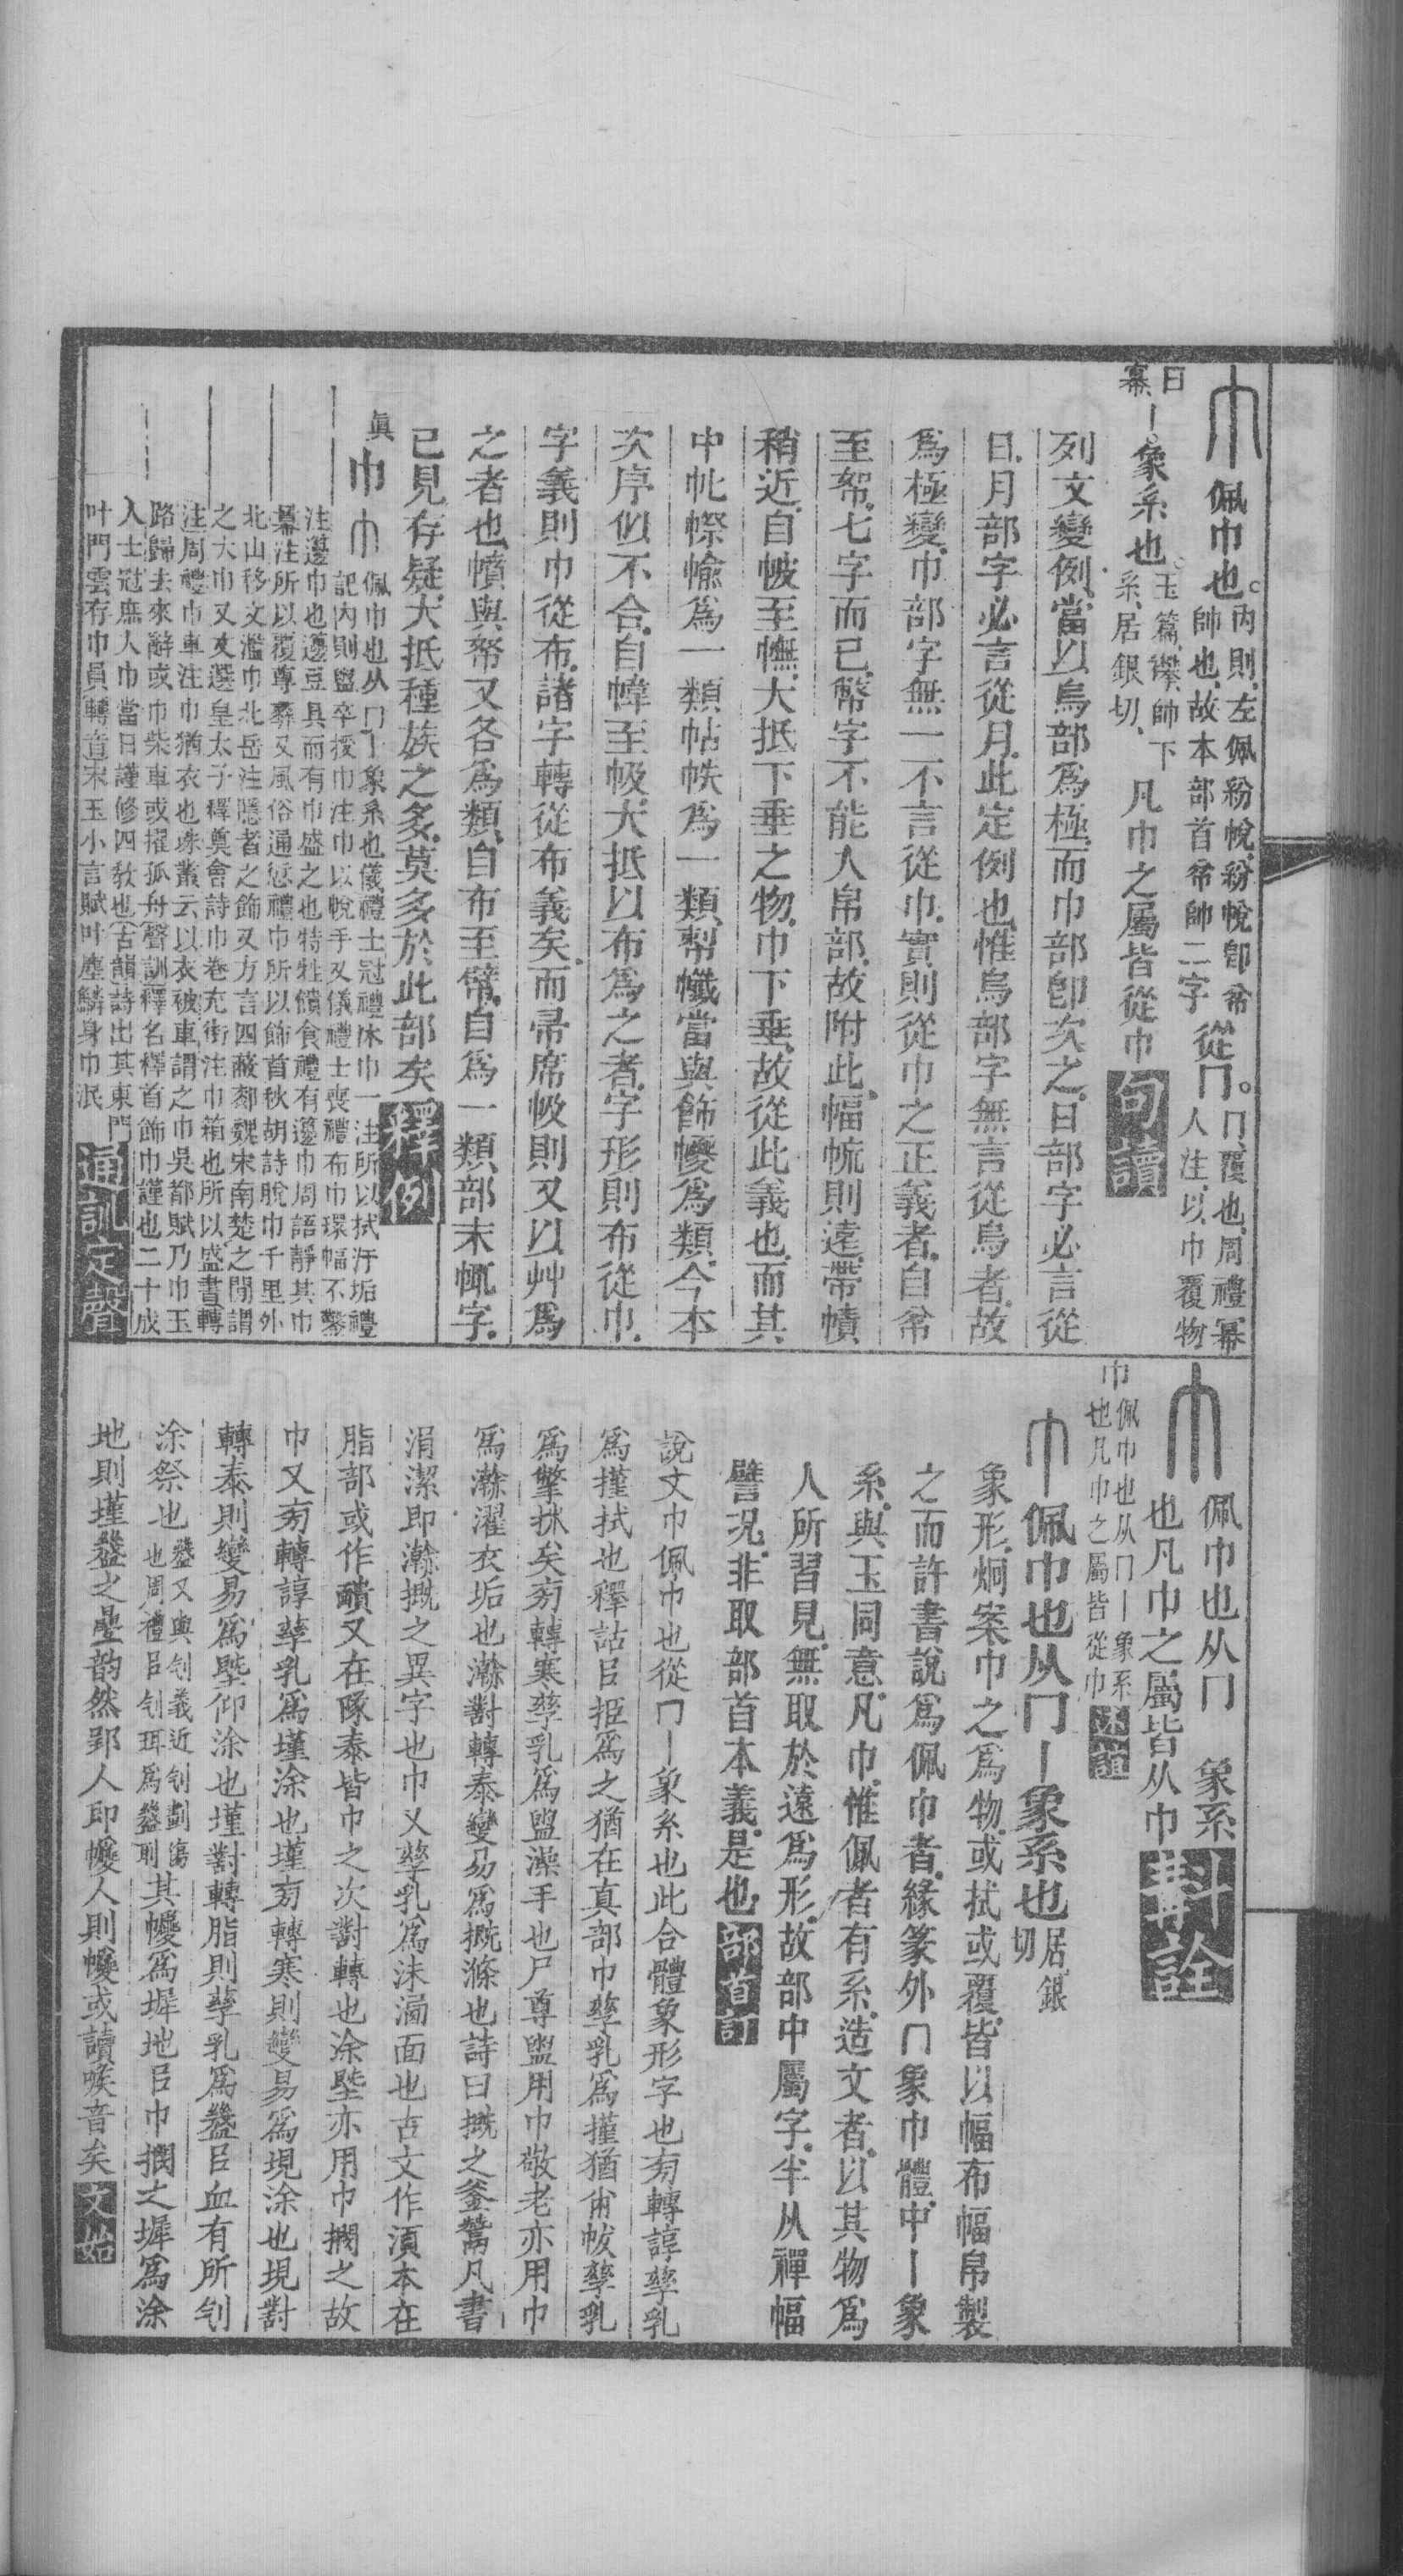 巾佩巾也。內則、左佩紛帨、紛帨卽帉
帥也、故本部首帉帥二字從冂。冂、覆也、周禮冪
人注、以巾覆物
曰冪丨。象系也。玉篇、幋、帥下
系、居銀切、凡巾之屬皆從巾句讀
列文變例、當以烏部爲極、而巾部卽次之、日部字必言從
日、月部字必言從月、此定例也、惟烏部字無言從烏者、故
爲極變、巾部字無一不言從巾、實則從巾之正義者、自帉
至帤、七字而已、幣字不能入帛部、故附此、幅㡆則遠、帶幘
稍近、自帔至幠、大抵下垂之物、巾下垂、故從此義也、而其
中㡊㡜㡏爲一類、帖帙爲一類、㡂幟當與飾幔爲類、今本
次序似不合、自幃至㡋、大抵以布爲之者、字形則布從巾、
字義則巾從布、諸字轉從布義矣、而帚席㡋則又以艸爲
之者也、幩與帑又各爲類、自布至㡙、自爲一類、部末㡇字、
已見存疑、大抵種族之多、莫多於此部矣釋例
眞巾巾佩巾也从冂丨象系也儀禮士冠禮沐巾一注所以拭汙垢禮
記內則盥卒授巾注巾以帨手又儀禮士喪禮布巾環幅不鑿
注籩巾也籩豆具而有巾盛之也特牲饋食禮有籩巾周語靜其巾
冪注所以覆尊彝又風俗通愆禮巾所以飾首秋胡詩脫巾千里外
北山移文濫巾北岳注隱者之飾又方言四蔽䣝魏宋南楚之閒謂
之大巾又文選皇太子釋奠會詩巾卷充街注巾箱也所以盛書轉
注周禮巾車注巾猶衣也珠叢云以衣被車謂之巾吳都賦乃巾玉
路歸去來辭或巾柴車或擢孤舟聲訓釋名釋首飾巾謹也二十成
人士冠庶人巾當日謹修四敎也古韻詩出其東門
叶門雲存巾員轉音宋玉小言賦叶塵鱗身巾泯通訓定聲
巾佩巾也从冂　象系
也凡巾之屬皆从巾斠詮
巾佩巾也从冂丨象系
也凡巾之屬皆從巾
巾佩巾也从冂丨象系也居銀
切
象形、炯案巾之爲物、或拭或覆、皆以幅布幅帛製
之而許書說爲佩巾者、緣篆外冂象巾體、中丨象
系、與玉同意、凡巾、惟佩者有系、造文者、以其物爲
人所習見、無取於遠爲形、故部中屬字、半从襌幅
譬況、非取部首本義、是也、部首訂
說文巾佩巾也從冂丨象系也此合體象形字也㫄轉諄孳乳
爲㨷拭也釋詁㠯挋爲之猶在真部巾孳乳爲㨷猶帗孳乳
爲㩢抹矣㫄轉寒孳乳爲盥澡手也尸尊盥用巾敬老亦用巾
爲㶕濯衣垢也㶕對轉泰變易爲摡滌也詩曰摡之釜鬵凡書
涓潔即㶕摡之異字也巾又孳乳爲沬洒面也古文作湏本在
脂部或作靧又在隊泰皆巾之次對轉也涂塈亦用巾撋之故
巾又㫄轉諄孳乳爲墐涂也墐㫄轉寒則變易爲垷涂也垷對
轉泰則變易爲塈仰涂也墐對轉脂則孳乳爲㡮㠯血有所刉
涂祭也㡮又與刉義近刉劃傷
也周禮㠯刉珥爲㡮刵其幔爲墀地㠯巾撋之墀爲涂
地則墐㡮之壘韵然郢人即幔人則幔或讀㬋音矣文始